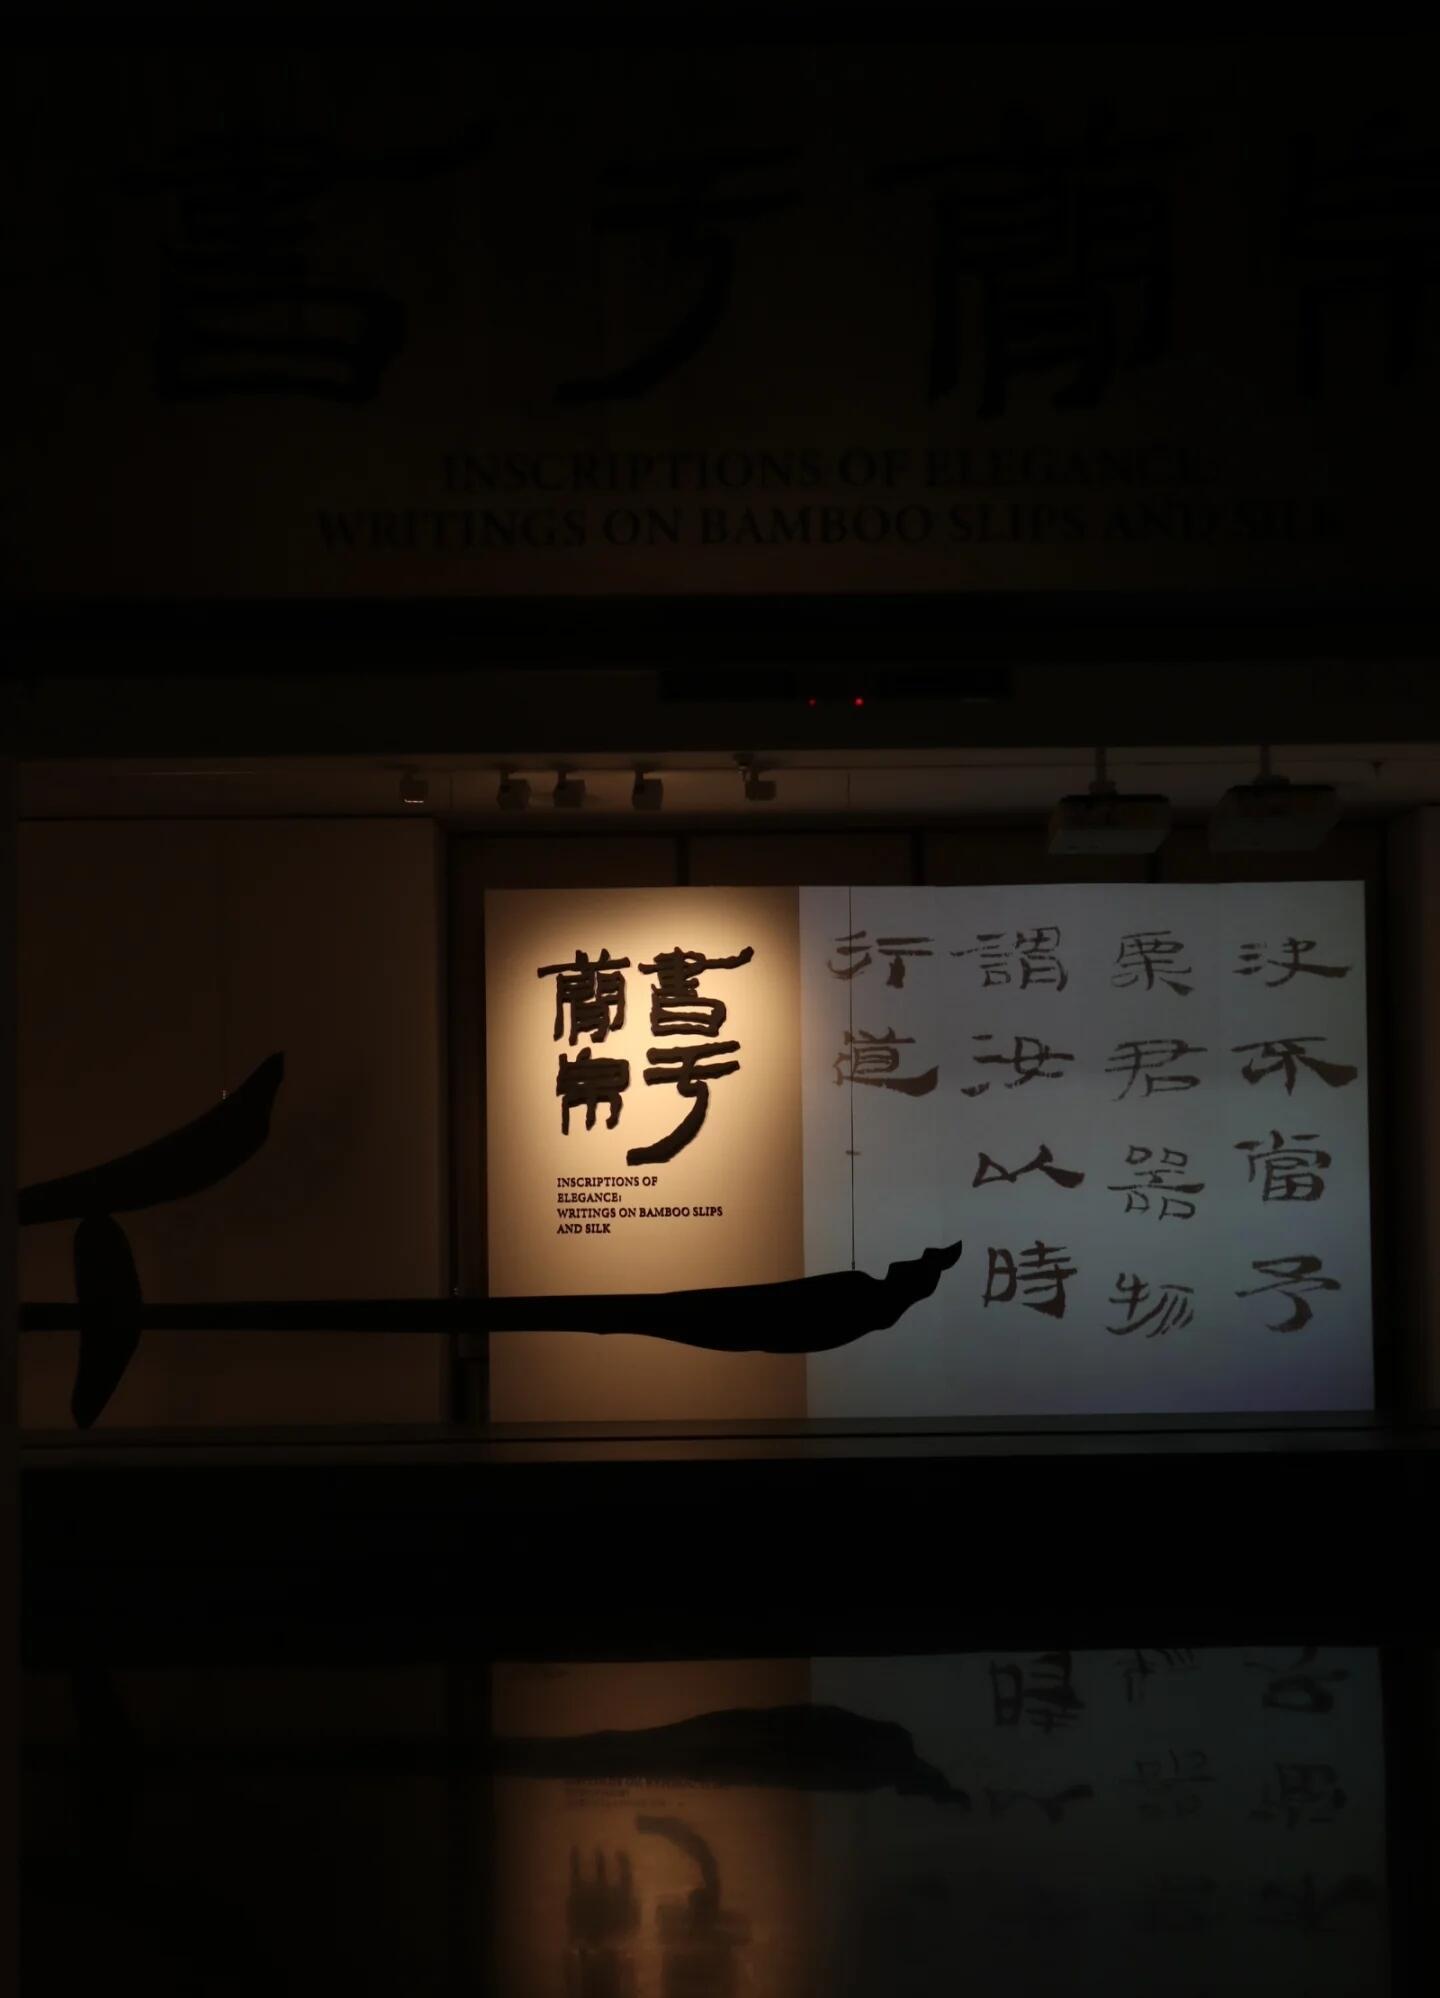 書于簡帛
INSCRIPTIONS OF ELEGANCE:
WRITINGS ON BAMBOO SLIPS AND SILK
書于
簡帛
INSCRIPTIONS OF
ELEGANCE:
WRITINGS ON BAMBOO SLIPS
AND SILK
決不當予
粟君器物
謂汝以時
行道